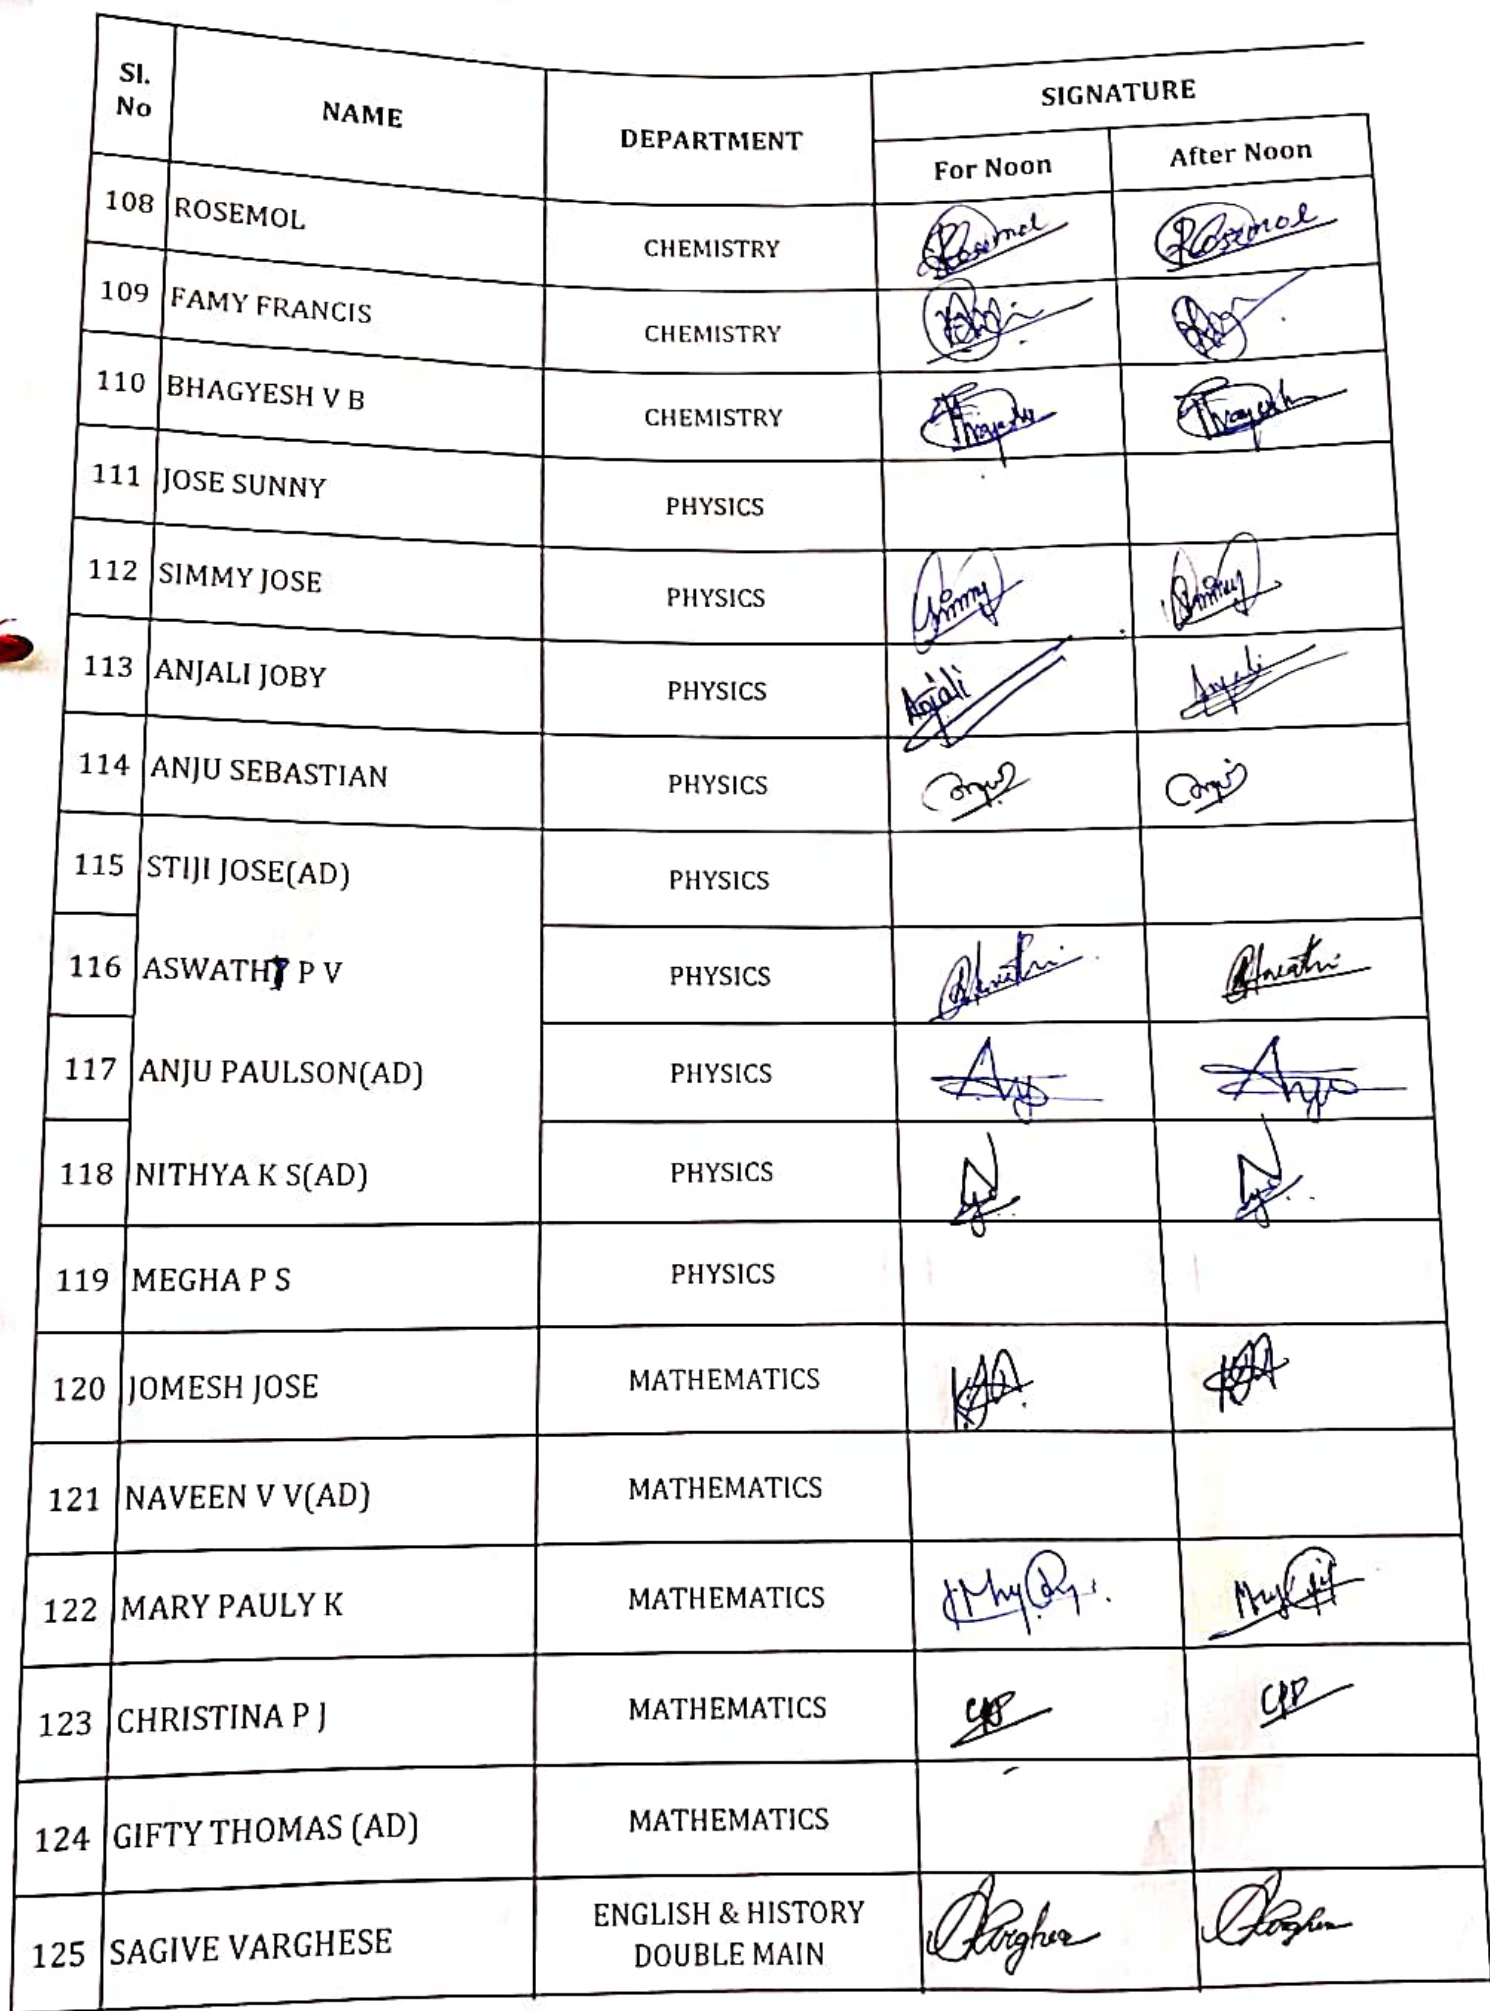 Sl. No NAME DEPARTMENT SIGNATURE
For Noon After Noon
108 ROSEMOL CHEMISTRY Rosemol Rosemol
109 FAMY FRANCIS CHEMISTRY
110 BHAGYESH V B CHEMISTRY
111 JOSE SUNNY PHYSICS
112 SIMMY JOSE PHYSICS Simmy Simmy
113 ANJALI JOBY PHYSICS Anjali Anjali
114 ANJU SEBASTIAN PHYSICS
115 STIJI JOSE(AD) PHYSICS
116 ASWATHI P V PHYSICS
117 ANJU PAULSON(AD) PHYSICS Anju Anju
118 NITHYA K S(AD) PHYSICS
119 MEGHA P S PHYSICS
120 JOMESH JOSE MATHEMATICS
121 NAVEEN V V(AD) MATHEMATICS
122 MARY PAULY K MATHEMATICS
123 CHRISTINA P J MATHEMATICS
124 GIFTY THOMAS (AD) MATHEMATICS
125 SAGIVE VARGHESE ENGLISH & HISTORY
DOUBLE MAIN